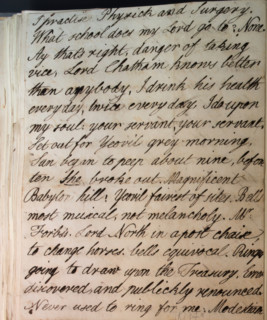 I practice Physick and Surgery.
What school does my Lord go to? None
Ay that's right, danger of taking
vice, Lord Chatham knows better
than anybody, I drink his health
every day, twice every day, I do upon
my soul: your servant, your servant.
Set out for Yeovil grey morning,
Sun began to peep about nine, before
ten She broke out. Magnificent
Babylon hill; Yeovil fairest of sites. Bells
most musical, not melancholy. Mr.
Forbis. Lord North in a post chair
to change horses. bells equivocal. Ringers
going to draw upon the Treasury,
discovered and publickly renounced.
Never used to ring for me. Modestum